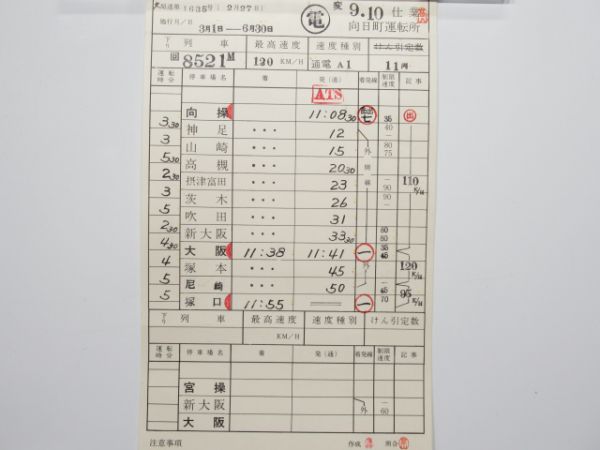 大阪達第1635号( 2月27日)
施行月/日 3月1日—6月30日
電 変 9.10 仕業
向日町運転所
下り 列車 最高速度 速度種別 けん引定数
回 8521M 120 KM/H 通電 A1 11両
運転時分 停車場名 着 発(通) 着発線 制限速度 記事
ATS
向操 11:08 30 七 35 出
3 30 神足 ・・・ 12 40
3 山崎 ・・・ 15 外 80 75
5 30 高槻 ・・・ 20 30 側
2 30 摂津富田 ・・・ 23 線 90 110 K/H
3 茨木 ・・・ 26 90
5 吹田 ・・・ 31
2 30 新大阪 ・・・ 33 30 60 60
4 30 大阪 11:38 11:41 一 35
4 塚本 ・・・ 45 外 120 K/H
5 尼崎 ・・・ 50 65 95 K/H
5 塚口 11:55 一 70
下り 列車 最高速度 速度種別 けん引定数
KM/H
運転時分 停車場名 着 発(通) 着発線 制限速度 記事
宮操
新大阪 外 60
大阪
注意事項 作成 照合